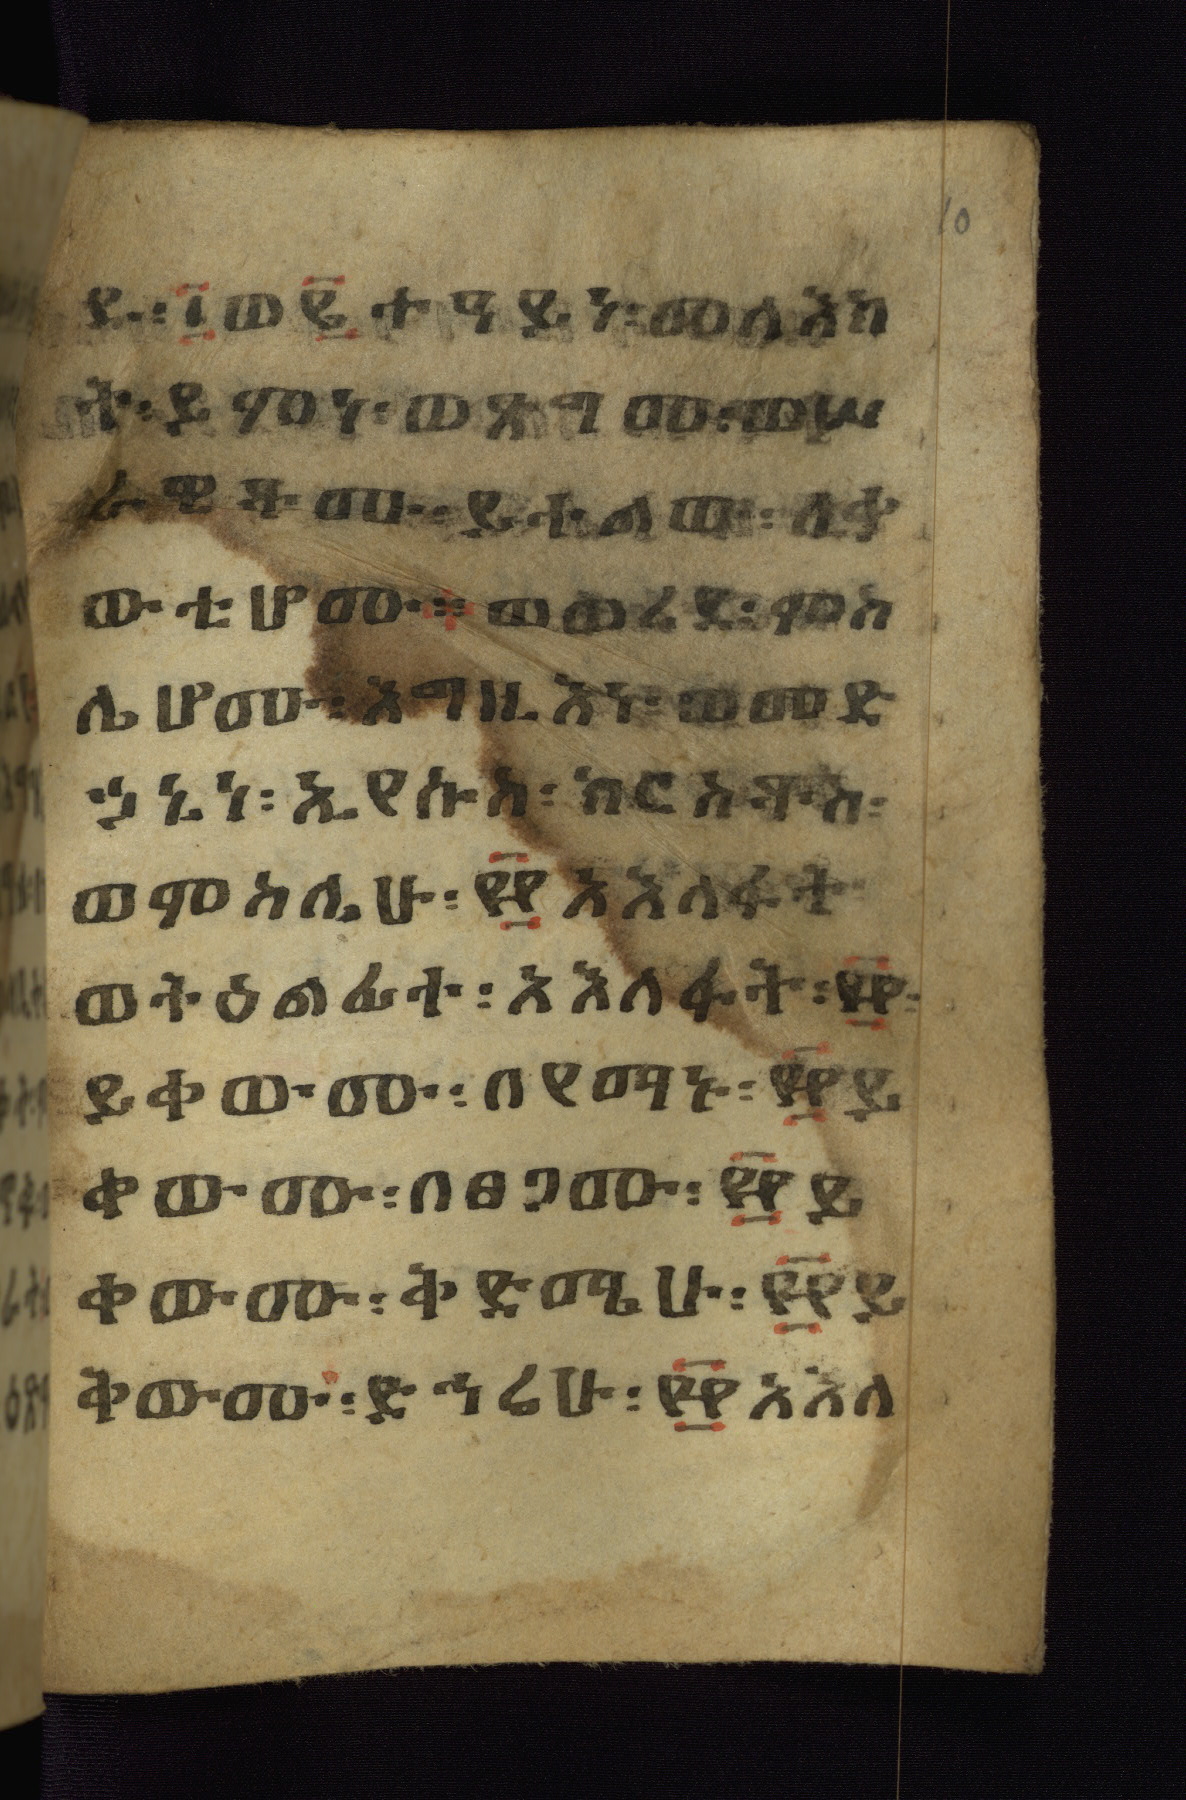 10
ይ፡ ፲ወ፪ተ ዓይነ፡ መለአክ
ት፡ ይምነ፡ ወጸግሙ፡ ወሠ
ራዊቶሙ፡ ይተልው፡ ለቀ
ውቲሆሙ። ወወረደ፡ ምስ
ሌሆሙ፡ እግዚእነ፡ ወመድ
ኃኒነ፡ ኢየሱስ፡ ክርስቶስ፡
ወምስሌሁ፡ ፼አእላፋት
ወትዕልፊተ፡ አእላፋት፡ ፼፡
ይቀውሙ፡ በየማኑ፡ ፼ይ
ቀውሙ፡ በፀጋሙ፡ ፼ይ
ቀውሙ፡ ቅድሜሁ፡ ፼ይ
ቅውሙ፡ ድኅሬሁ፡ ፼አእለ